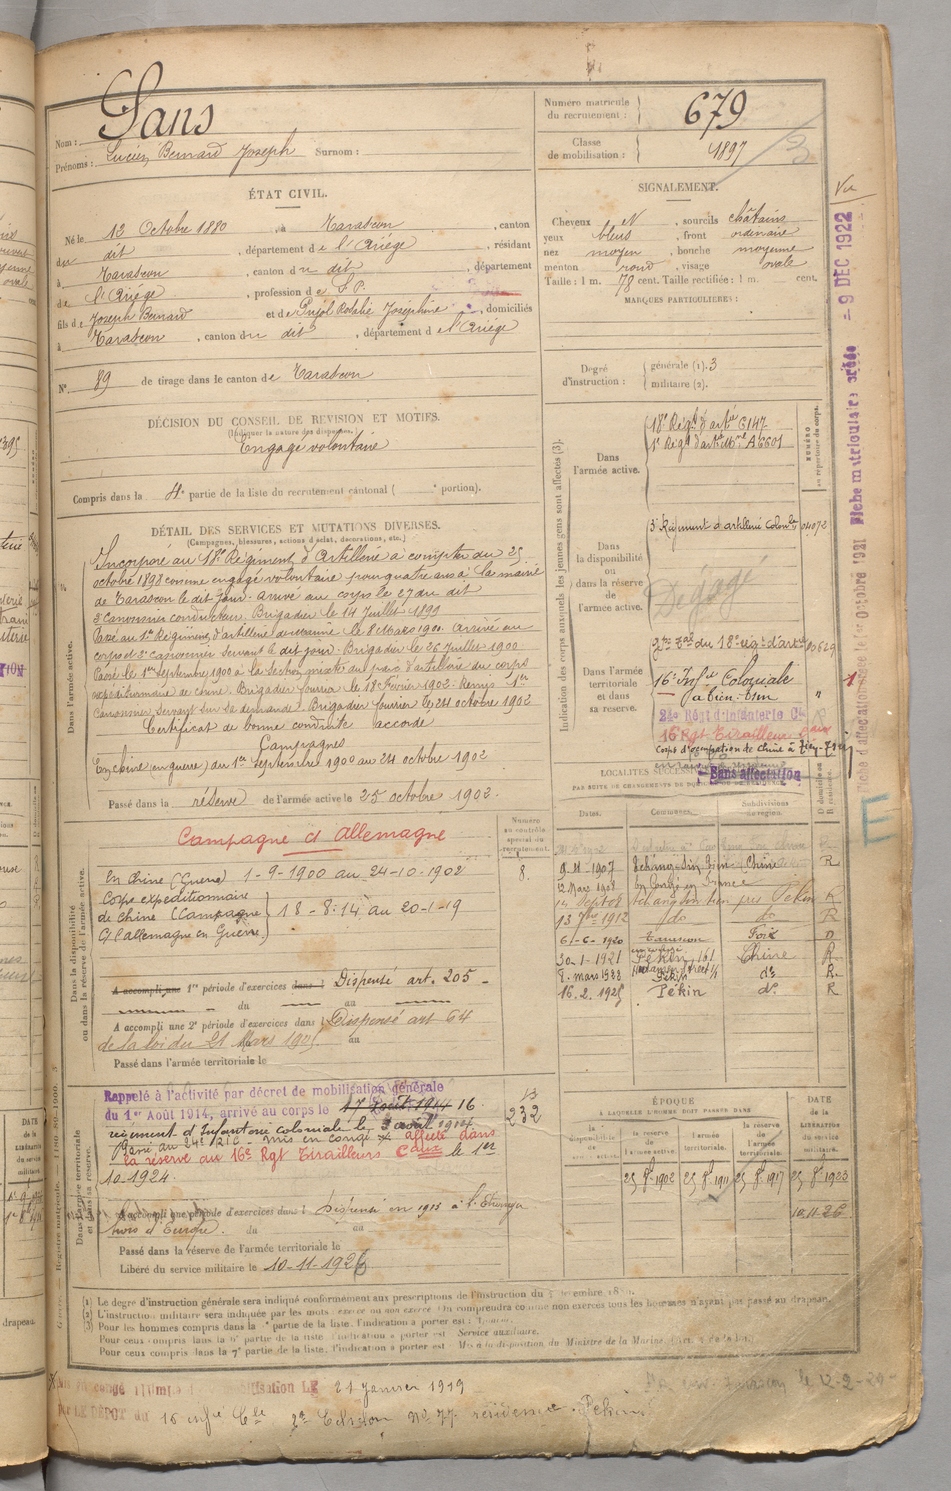 Nom : Sans
Prénoms : Lucien Bernard Joseph Surnom :
Numéro matricule du recrutement : 679
Classe de mobilisation : 1897
ÉTAT CIVIL.
Né le 12 Octobre 1880, à Tarascon, canton
du dit, département de l'Ariège, résidant
à Tarascon, canton du dit, département
de l'Ariège, profession de
fils de Joseph Bernard et de Pujol Rosalie Joséphine, domiciliés
à Tarascon, canton du dit, département de l'Ariège
N° 89 de tirage dans le canton de Tarascon
DÉCISION DU CONSEIL DE REVISION ET MOTIFS.
(Indiquer la nature des dispenses.)
Engagé volontaire
Compris dans la 4e partie de la liste du recrutement cantonal ( portion).
DÉTAIL DES SERVICES ET MUTATIONS DIVERSES.
(Campagnes, blessures, actions d'éclat, décorations, etc.)
Dans l'armée active.
Incorporé au 18e Régiment d'Artillerie à compter du 25
octobre 1898 comme engagé volontaire pour quatre ans à la mairie
de Tarascon le dit jour. Arrivé au corps le 27 du dit
2e Canonnier conducteur. Brigadier le 14 Juillet 1899
Passé au 1er Régiment d'artillerie de marine le 8 Mars 1900. Arrivé au
corps et 2e Canonnier Servant le dit jour. Brigadier le 26 Juillet 1900
Passé le 1er Septembre 1900 à la Section mixte au parc d'artillerie du corps
expéditionnaire de Chine. Brigadier fourrier le 18 Février 1902. Remis 1er
Canonnier Servant sur sa demande. Brigadier fourrier le 24 octobre 1902
Certificat de bonne conduite accordé
Campagnes
En Chine (en guerre) du 1er Septembre 1900 au 24 octobre 1902
Passé dans la réserve de l'armée active le 25 octobre 1902.
SIGNALEMENT.
Cheveux N, sourcils châtains
yeux bleus, front ordinaire
nez moyen, bouche moyenne
menton rond, visage ovale
Taille : 1 m. 78 cent. Taille rectifiée : 1 m. cent.
MARQUES PARTICULIÈRES :
Degré d'instruction : générale (1). 3
militaire (2).
Indication des corps auxquels les jeunes gens sont affectés (3).
NUMÉRO au répertoire du corps.
Dans l'armée active.
18e Régt d'artie 6147
1er Régt d'artie Mne A6601
Dans la disponibilité ou dans la réserve de l'armée active.
3e Régiment d'artillerie Coloniale 04072
Dégagé
Dans l'armée territoriale et dans sa réserve.
du 18e régt d'artie 03629
16e Infie Coloniale
à Tien-Tsin
24e Régt d'Infanterie Cle
16e Rgt Tirailleurs Caux
Corps d'occupation de Chine à Tien-Tsin
Sans affectation
LOCALITÉS SUCCESSIVES
Dates. Communes. Subdivisions de région. D domicile ou R résidence.
9-11-1907 Chine R
12 Mars 1908 en Congé en France
Pékin R
13 7bre 1912 do do R
6-6-1920 Tarascon Foix D
30-1-1921 Pékin Chine R
2. mars 1922 Pékin do R
16.2.1925 Pékin do R
Dans la disponibilité ou dans la réserve de l'armée active.
Numéro au contrôle spécial du recrutement.
Campagne c/ Allemagne
En Chine (Guerre) 1-9-1900 au 24-10-1902
Corps expéditionnaire
de Chine (Campagne
C/ allemagne en Guerre) 18-8-14 au 20-1-19
8.
A accompli une 1re période d'exercices dans l Dispensé art. 205
du au
A accompli une 2e période d'exercices dans l Dispensé art 64
de la loi du 21 Mars 1905. au
Passé dans l'armée territoriale le
Dans l'armée territoriale et dans sa réserve.
Rappelé à l'activité par décret de mobilisation générale
du 1er Août 1914, arrivé au corps le 17 Août 1914 16
régiment d'Infanterie coloniale le 3 août 1914
Passé au 24e R.I.C. mis en congé affecté dans
la réserve au 16e Rgt Tirailleurs Caux le 1er
10-1924.
232
A accompli une période d'exercices dans l Dispensé en 1913 à l'Etranger
hors d'Europe. du au
Passé dans la réserve de l'armée territoriale le
Libéré du service militaire le 10-11-1926
ÉPOQUE
À LAQUELLE L'HOMME DOIT PASSER DANS
la disponibilité de l'armée active. la réserve de l'armée active. l'armée territoriale. la réserve de l'armée territoriale. DATE de la LIBÉRATION du service militaire.
25 8bre 1902 25 8bre 1911 25 8bre 1917 25 8bre 1923
10.11.26
(1) Le degré d'instruction générale sera indiqué conformément aux prescriptions de l'instruction du
(2) L'instruction militaire sera indiquée par les mots : exercé ou non exercé. On comprendra comme non exercés tous les hommes n'ayant pas passé au drapeau.
(3) Pour les hommes compris dans la partie de la liste, l'indication à porter est :
Pour ceux compris dans la 6e partie de la liste l'indication à porter est Service auxiliaire.
Pour ceux compris dans la 7e partie de la liste, l'indication à porter est Mis à la disposition du Ministre de la Marine
congé illimité de démobilisation LE 21 janvier 1919
par LE DÉPOT du 16 infie Cle 2e Echelon No 77 résidence Pékin
Vu
- 9 DEC 1922
Fiche matriculaire créée
Fiche d'affectation créée le 1er Octobre 1921
E